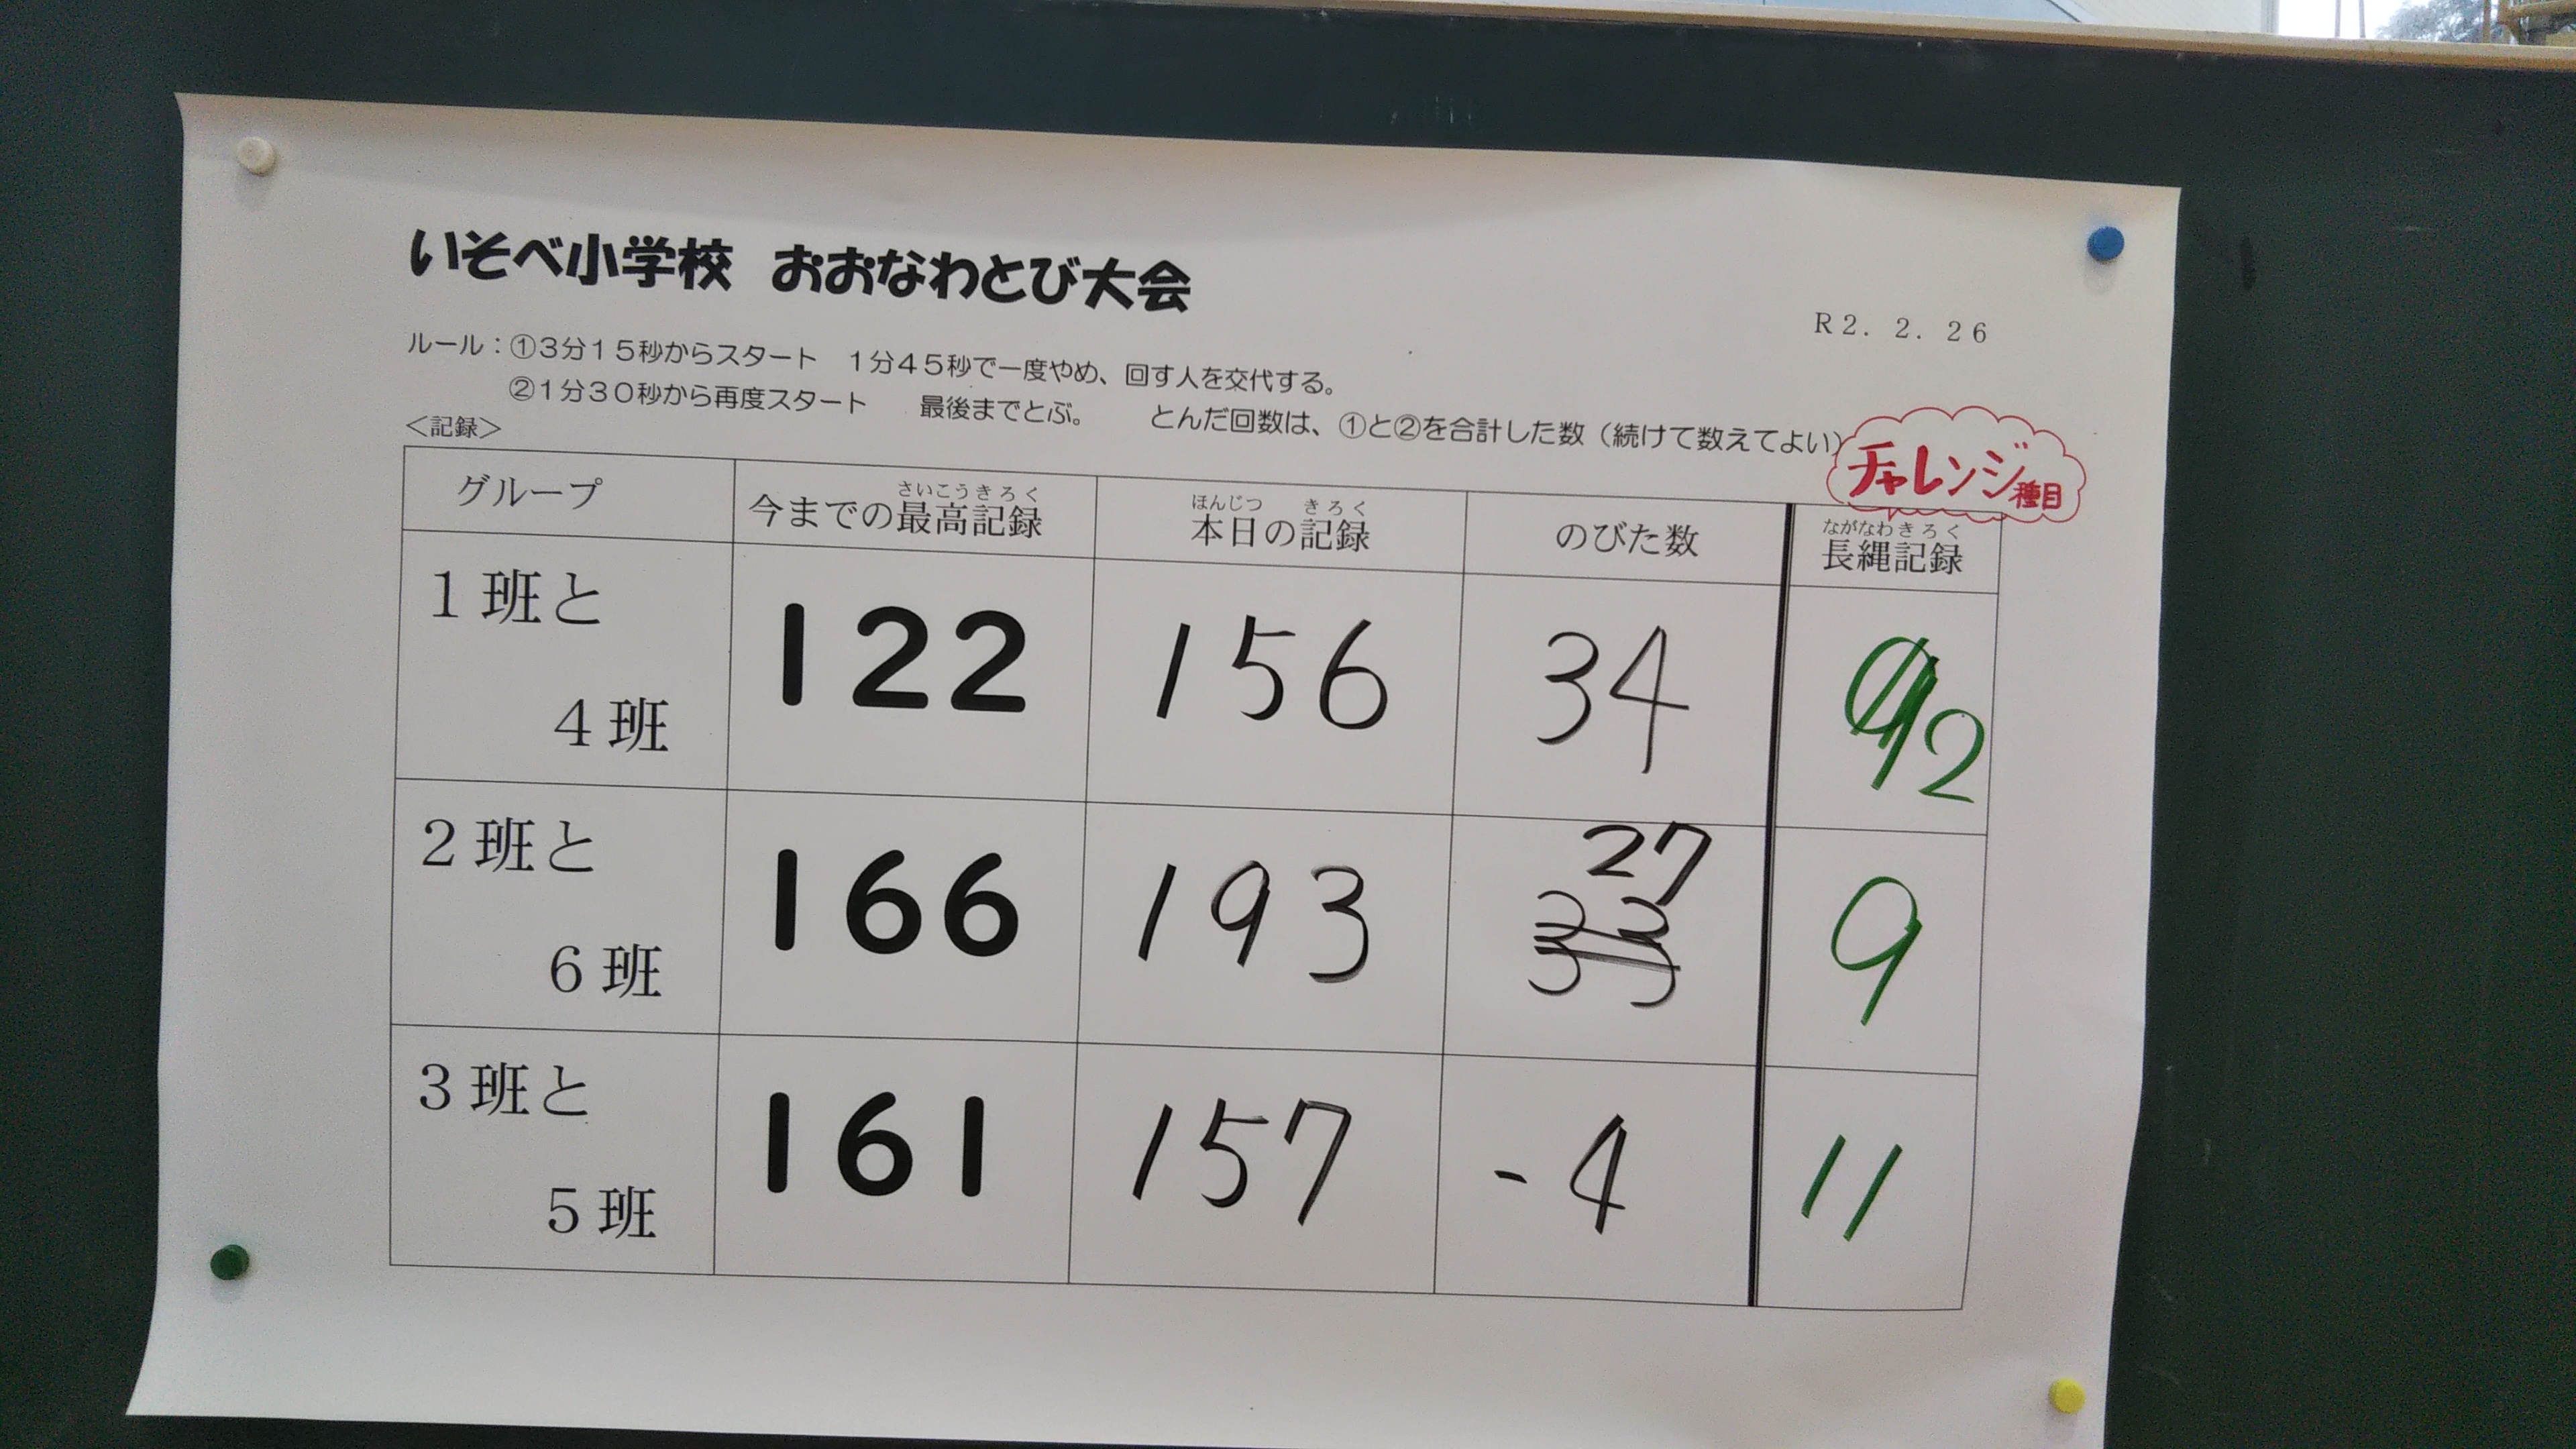 いそべ小学校 おおなわとび大会
R2. 2. 26
ルール：①3分15秒からスタート 1分45秒で一度やめ、回す人を交代する。
②1分30秒から再度スタート 最後までとぶ。 とんだ回数は、①と②を合計した数（続けて数えてよい）
＜記録＞
チャレンジ種目
グループ 今までの最高記録 本日の記録 のびた数 長縄記録
さいこうきろく ほんじつ きろく ながなわきろく
1班と4班 122 156 34 12
2班と6班 166 193 27 9
3班と5班 161 157 -4 11